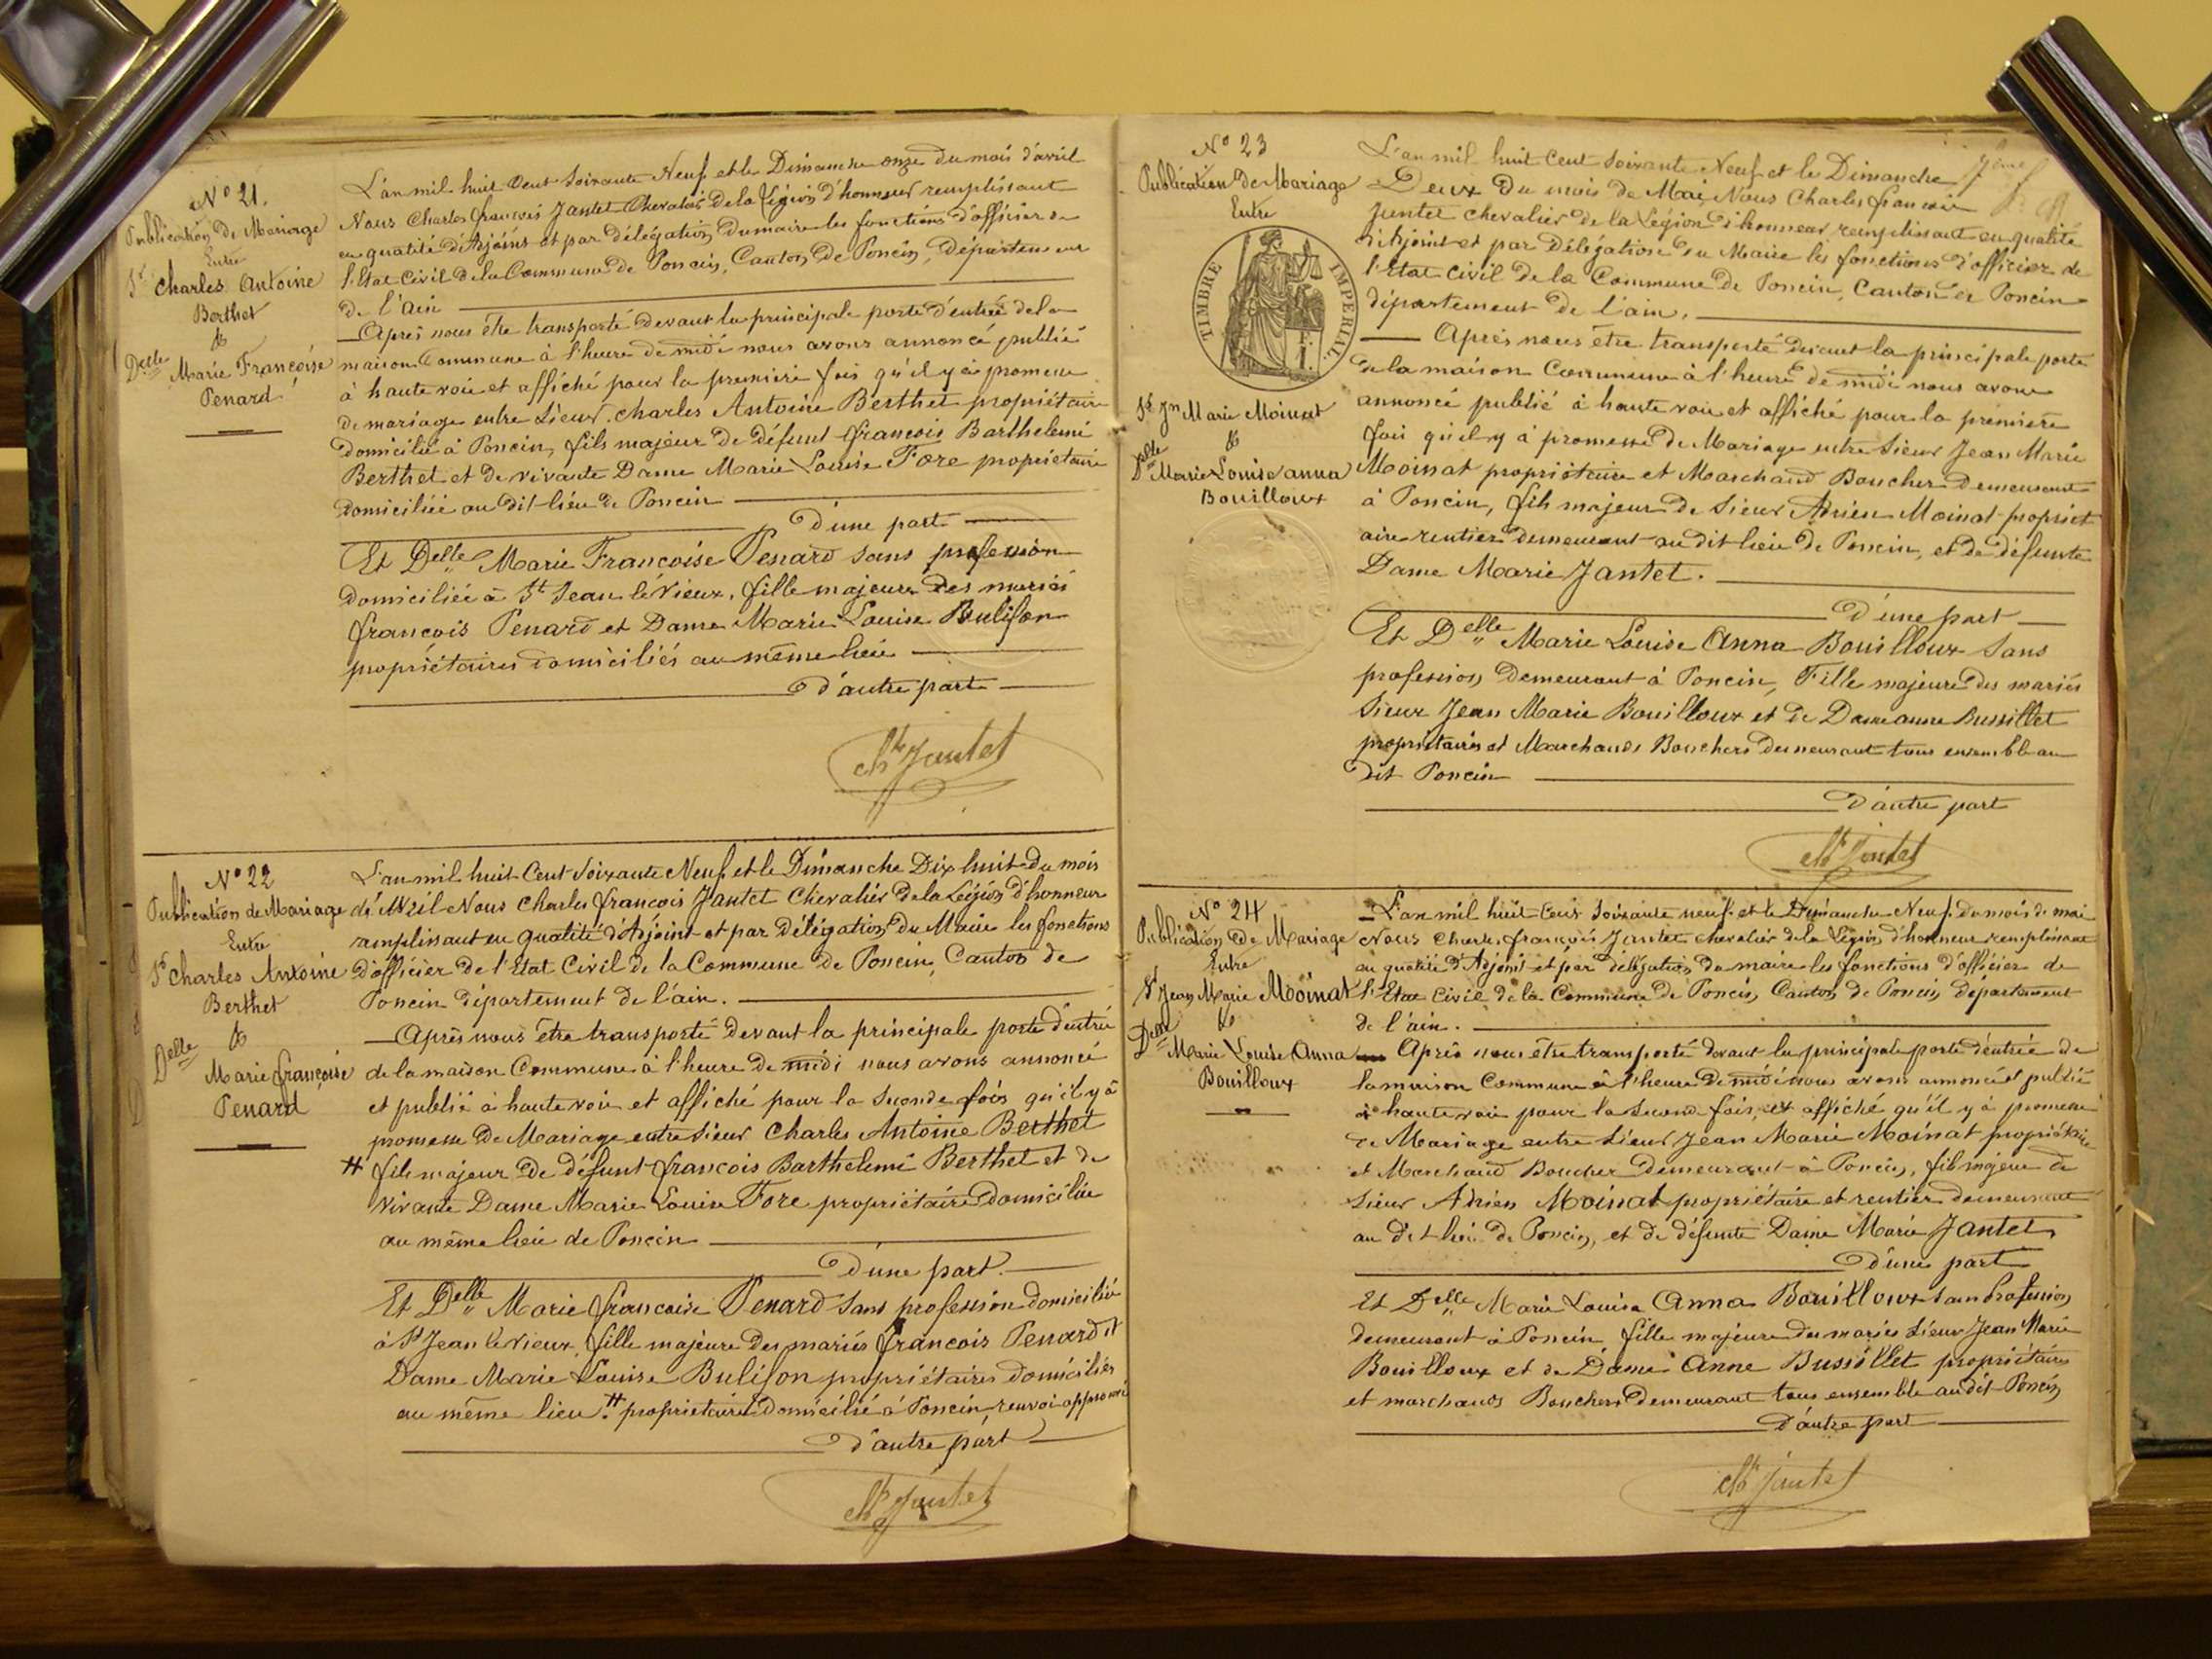 N° 21.
Publication de Mariage
Entre
Sr Charles Antoine
Berthet
&
Delle Marie Françoise
Penard
L'an mil huit Cent Soixante Neuf et le Dimanche onze du mois d'avril
Nous Charles françois Jantet Chevalier de la Légion d'honneur remplissant
en qualité d'Adjoint et par délégation du maire les fonctions d'officier de
l'Etat Civil de la Commune de Poncin, Canton de Poncin, département
de l'ain
Après nous être transporté devant la principale porte d'entrée de la
maison Commune à l'heure de midi nous avons annoncé publié
à haute voie et affiché pour la première fois qu'il y à promesse
de mariage entre Sieur Charles Antoine Berthet propriétaire
domicilié à Poncin, fils majeur de défunt françois Barthelemi
Berthet et de vivante Dame Marie Louise Fore propriétaire
domiciliée au dit lieu de Poncin
D'une part
Et Delle Marie Françoise Penard sans profession
domiciliée à St Jean le Vieux, fille majeure des mariés
françois Penard et Dame Marie Louise Bulifon
propriétaires domiciliés au même lieu
d'autre part
Ch Jantet
N° 22
Publication de Mariage
Entre
Sr Charles Antoine
Berthet
&
Delle
Marie françoise
Penard
L'an mil huit Cent Soixante Neuf et le Dimanche Dix huit du mois
d'Avril Nous Charles françois Jantet Chevalier de la Légion d'honneur
remplissant en qualité d'Adjoint et par délégation du Maire les fonctions
d'officier de l'Etat Civil de la Commune de Poncin, Canton de
Poncin département de l'ain.
Après nous être transporté devant la principale porte d'entrée
de la maison Commune à l'heure de midi nous avons annoncé
et publié à haute voie et affiché pour la Seconde fois qu'il y à
promesse de Mariage entre Sieur Charles Antoine Berthet
# fils majeur de défunt françois Barthelemi Berthet et de
vivante Dame Marie Louise Fore propriétaire Domiciliée
au même lieu de Poncin
D'une part.
Et Delle Marie françoise Penard sans profession domiciliée
à St Jean le Vieux, fille majeure des mariés françois Penard et
Dame Marie Louise Bulifon propriétaires domiciliés
au même lieu. # propriétaire Domicilié à Poncin, renvoi approuvé
d'autre part
Ch Jantet
N° 23
Publication de Mariage
Entre
TIMBRE IMPÉRIAL
Sr Jn Marie Moinat
&
Delle Marie Louise anna
Bouilloux
L'an mil huit Cent Soixante Neuf et le Dimanche
Deux du mois de Mai Nous Charles françois
Jantet chevalier de la Légion d'honneur remplissant en qualité
d'Adjoint et par Délégation du Maire les fonctions d'officier de
l'Etat Civil de la Commune de Poncin, Canton de Poncin
département de l'ain.
Après nous être transporté devant la principale porte
de la maison Commune à l'heure de midi nous avons
annoncé publié à haute voie et affiché pour la première
fois qu'il y à promesse de Mariage entre Sieur Jean Marie
Moinat propriétaire et Marchand Boucher demeurant
à Poncin, fils majeur de Sieur Adrien Moinat propriét
aire rentier demeurant au dit lieu de Poncin, et de défunte
Dame Marie Jantet.
D'une part
Et Delle Marie Louise Anna Bouilloux Sans
profession demeurant à Poncin, Fille majeure des mariés
Sieur Jean Marie Bouilloux et de Dame anne Bussillet
propriétaires et Marchands Bouchers demeurant tous ensemble au
dit Poncin
D'autre part
Ch Jantet
N° 24
Publication de Mariage
Entre
Sr Jean Marie Moinat
&
Delle Marie Louise Anna
Bouilloux
L'an mil huit Cent Soixante neuf et le Dimanche Neuf du mois de mai
Nous Charles françois Jantet chevalier de la Légion d'honneur remplissant
en qualité d'Adjoint et par délégation du maire les fonctions d'officier de
l'Etat Civil de la Commune de Poncin, Canton de Poncin, département
de l'ain.
Après nous être transporté devant la principale porte d'entrée de
la maison Commune à l'heure de midi nous avons annoncé et publié
à haute voie pour la Seconde fois, et affiché qu'il y à promesse
de Mariage entre Sieur Jean Marie Moinat propriétaire
et Marchand Boucher demeurant à Poncin, fils majeur de
Sieur Adrien Moinat propriétaire et rentier demeurant
au dit lieu de Poncin, et de défunte Dame Marie Jantet
D'une part
Et Delle Marie Louise Anna Bouilloux sans profession
demeurant à Poncin, fille majeure des mariés Sieur Jean Marie
Bouilloux et de Dame Anne Bussillet propriétaires
et marchands Bouchers demeurant tous ensemble au dit Poncin
D'autre part
Ch Jantet